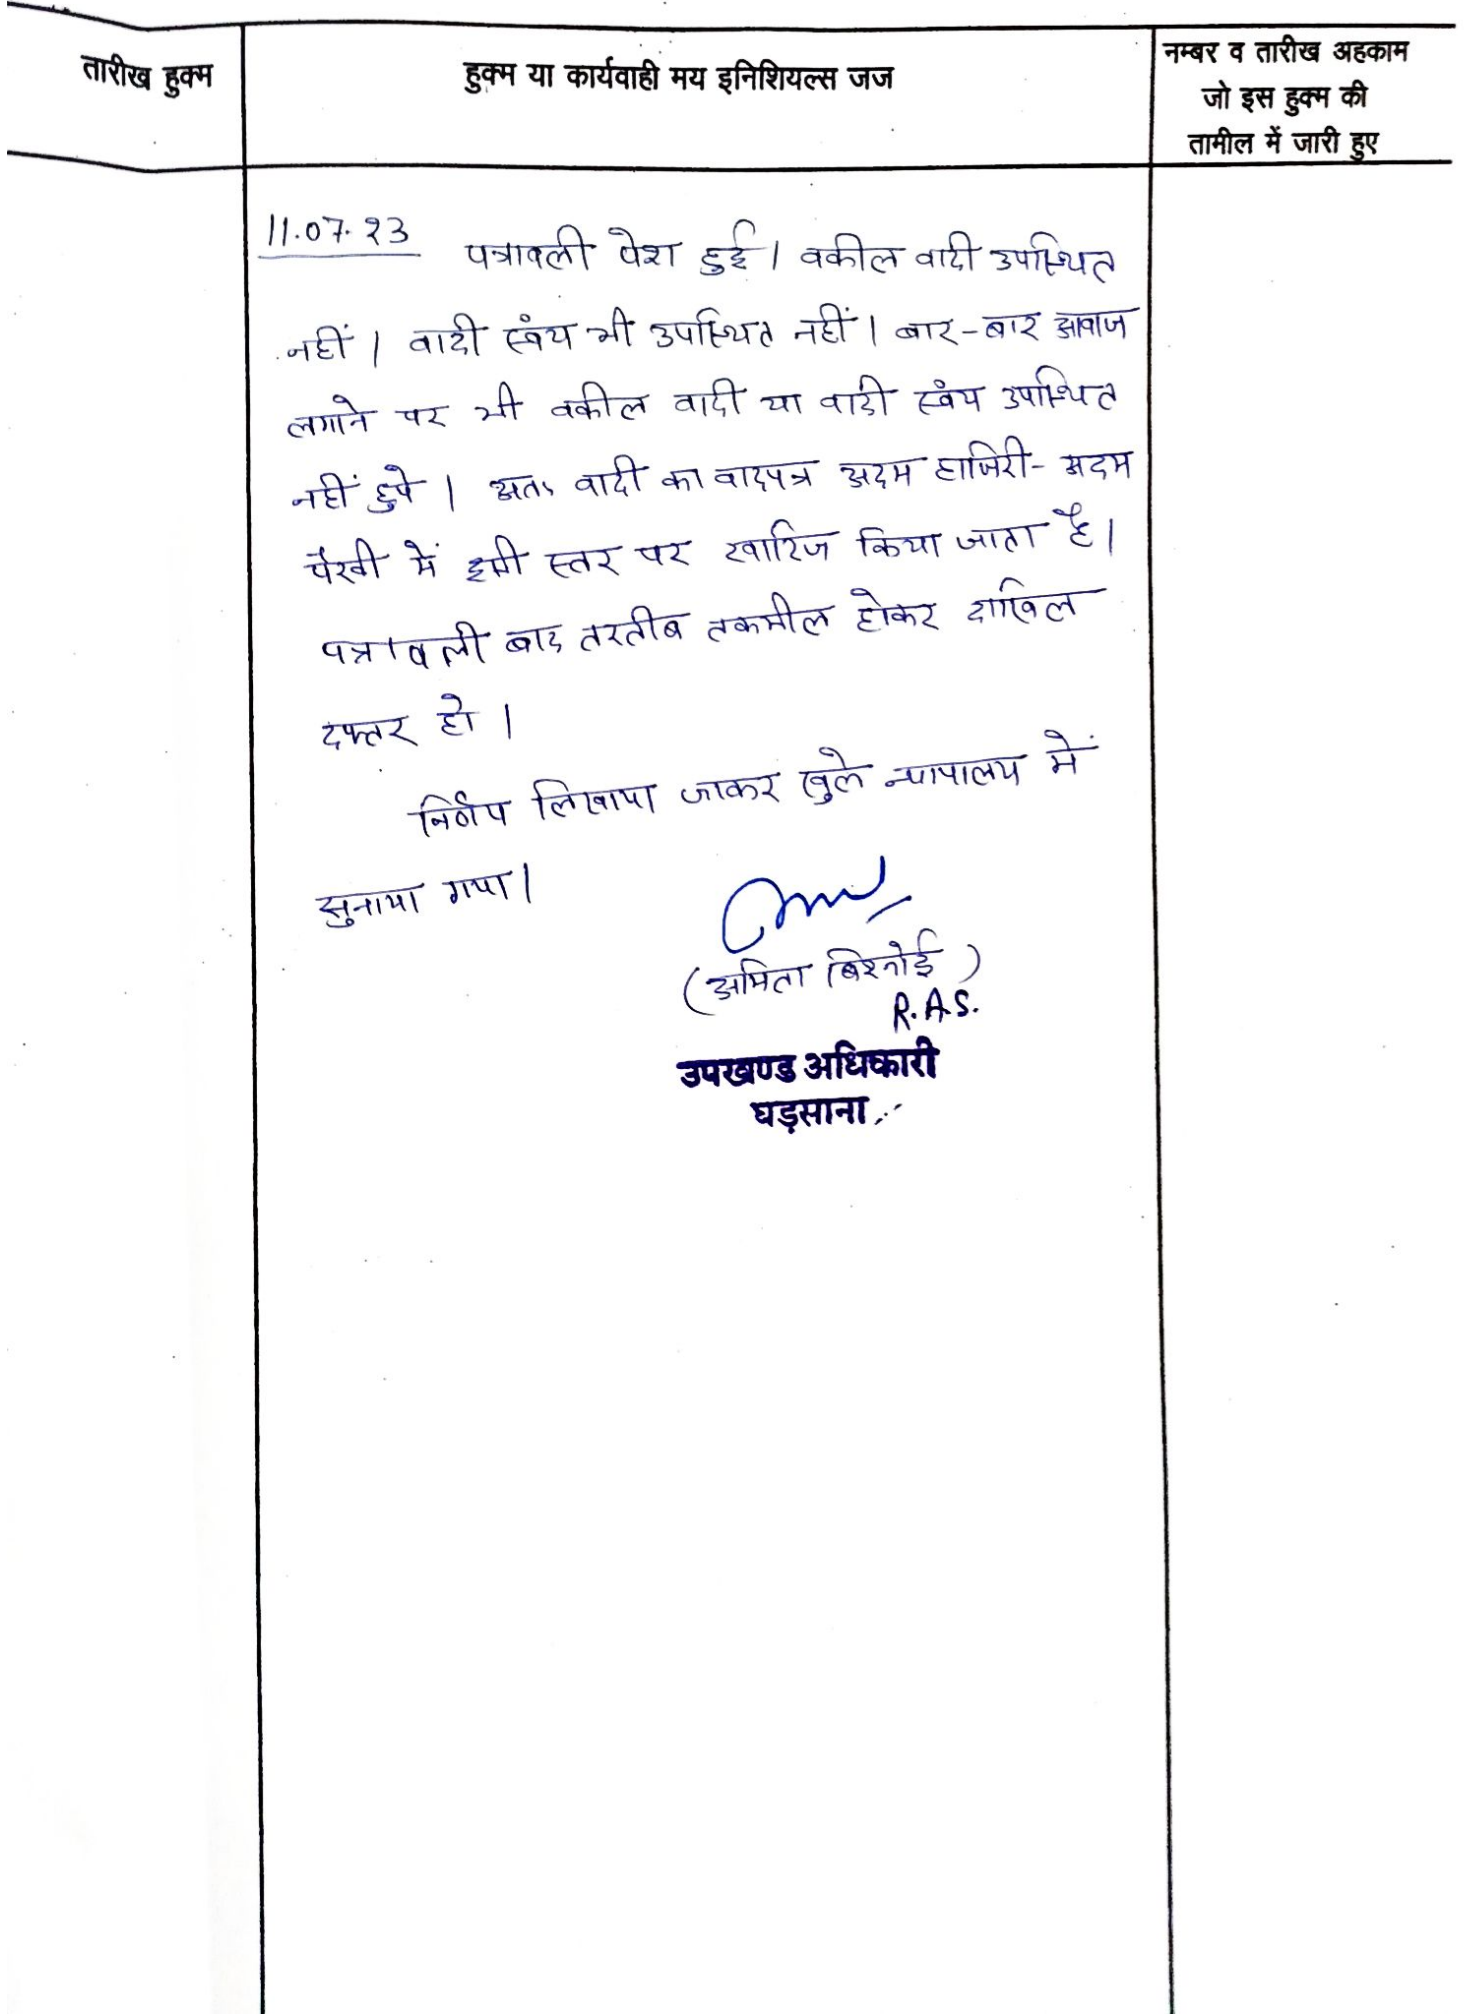 तारीख हुक्म
हुक्म या कार्यवाही मय इनिशियल्स जज
नम्बर व तारीख अहकाम
जो इस हुक्म की
तामील में जारी हुए
11.07.23
पत्रावली पेश हुई। वकील वादी उपस्थित
नहीं। वादी स्वंय भी उपस्थित नहीं। बार-बार आवाज
लगाने पर भी वकील वादी या वादी स्वंय उपस्थित
नहीं हुये। अतः वादी का वादपत्र अदम हाजिरी- अदम
पैरवी में इसी स्तर पर खारिज किया जाता है।
पत्रावली बाद तरतीब तकमील होकर दाखिल
दफ्तर हो।
निर्णय लिखाया जाकर खुले न्यायालय में
सुनाया गया।
(अमिता बिश्नोई)
R.A.S.
उपखण्ड अधिकारी
घड़साना